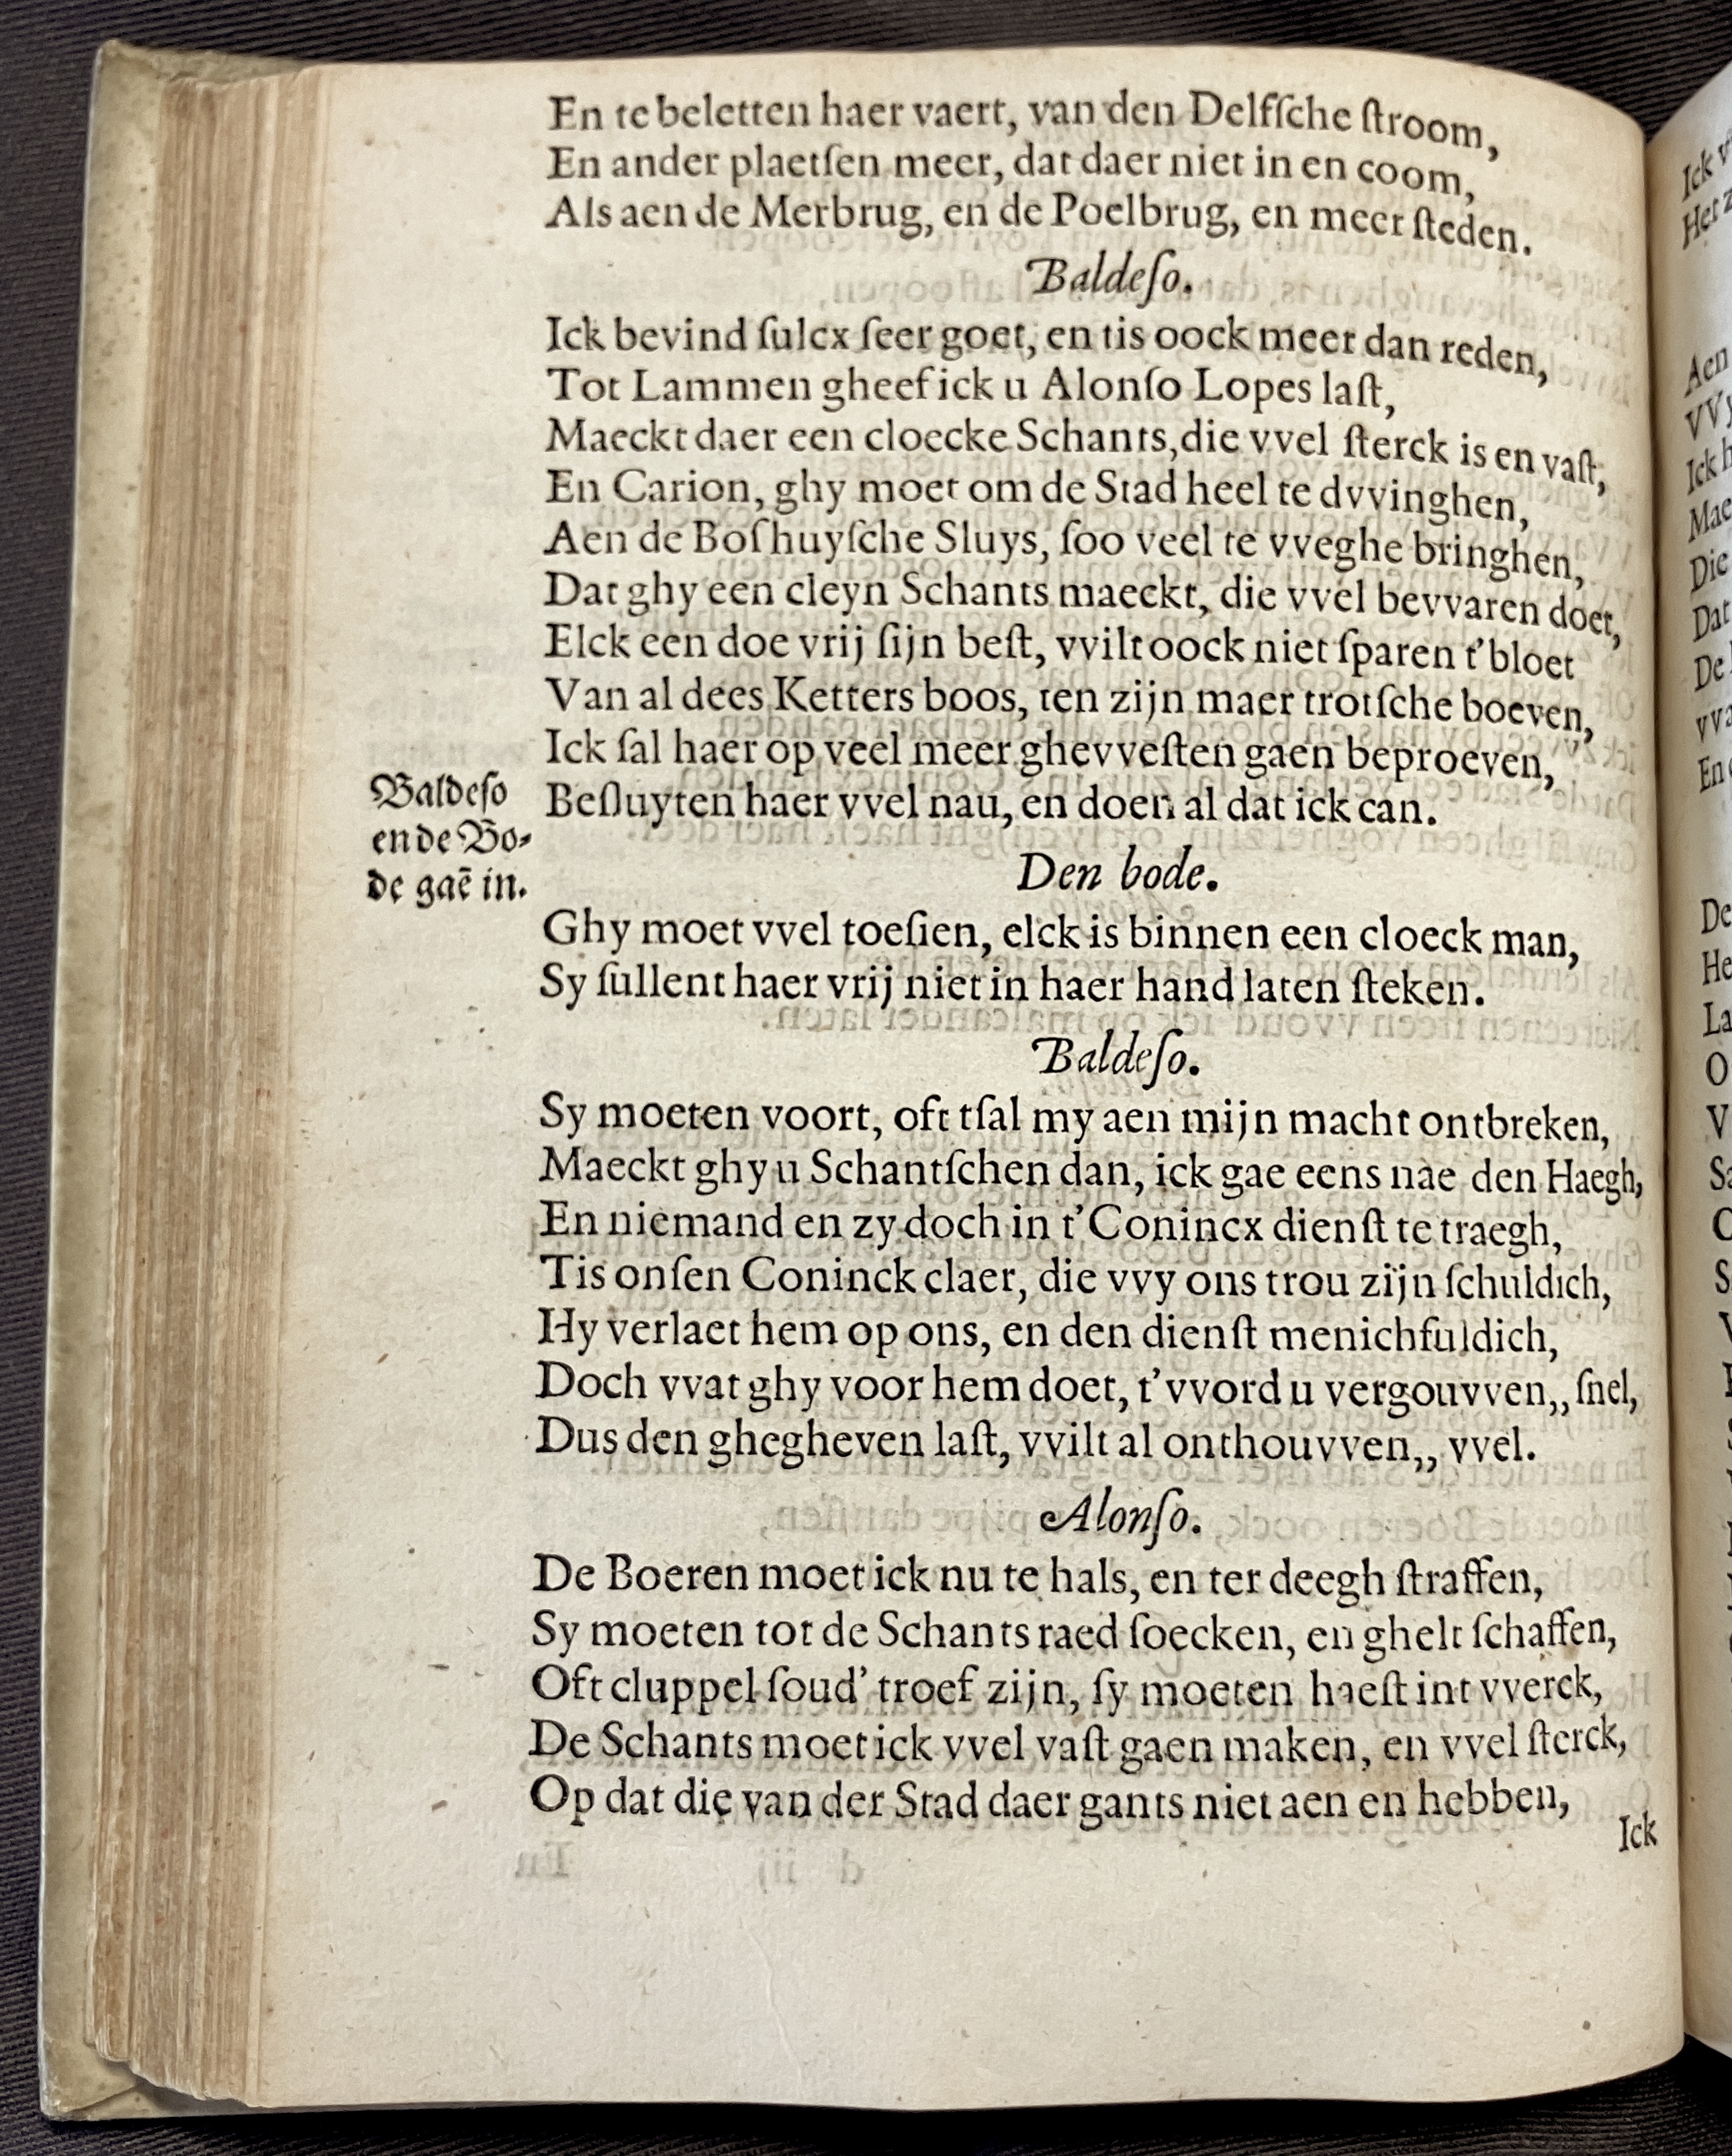 En te beletten haer vaert, van den Delfſche ſtroom,
En ander plaetſen meer, dat daer niet in en coom,
Als aen de Merbrug, en de Poelbrug, en meer ſteden.
Baldeſo.
Ick bevind ſulcx ſeer goet, en tis oock meer dan reden,
Tot Lammen gheef ick u Alonſo Lopes laſt,
Maeckt daer een cloecke Schants, die vvel ſterck is en vaſt,
En Carion, ghy moet om de Stad heel te dvvinghen,
Aen de Boſhuyſche Sluys, ſoo veel te vveghe bringhen,
Dat ghy een cleyn Schants maeckt, die vvel bevvaren doet,
Elck een doe vrij ſijn beſt, vvilt oock niet ſparen t'bloet
Van al dees Ketters boos, ten zijn maer trotſche boeven,
Ick ſal haer op veel meer ghevveſten gaen beproeven,
Beſluyten haer vvel nau, en doen al dat ick can.
Baldeſo
ende Bo-
de gaē in.
Den bode.
Ghy moet vvel toeſien, elck is binnen een cloeck man,
Sy ſullent haer vrij niet in haer hand laten ſteken.
Baldeſo.
Sy moeten voort, oft tſal my aen mijn macht ontbreken,
Maeckt ghy u Schantſchen dan, ick gae eens nae den Haegh,
En niemand en zy doch in t'Conincx dienſt te traegh,
Tis onſen Coninck claer, die vvy ons trou zijn ſchuldich,
Hy verlaet hem op ons, en den dienſt menichfuldich,
Doch vvat ghy voor hem doet, t'vvord u vergouvven,, ſnel,
Dus den ghegheven laſt, vvilt al onthouvven,, vvel.
Alonſo.
De Boeren moet ick nu te hals, en ter deegh ſtraffen,
Sy moeten tot de Schants raed ſoecken, en ghelt ſchaffen,
Oft cluppel ſoud' troef zijn, ſy moeten haeſt int vverck,
De Schants moet ick vvel vaſt gaen maken, en vvel ſterck,
Op dat die van der Stad daer gants niet aen en hebben,
Ick